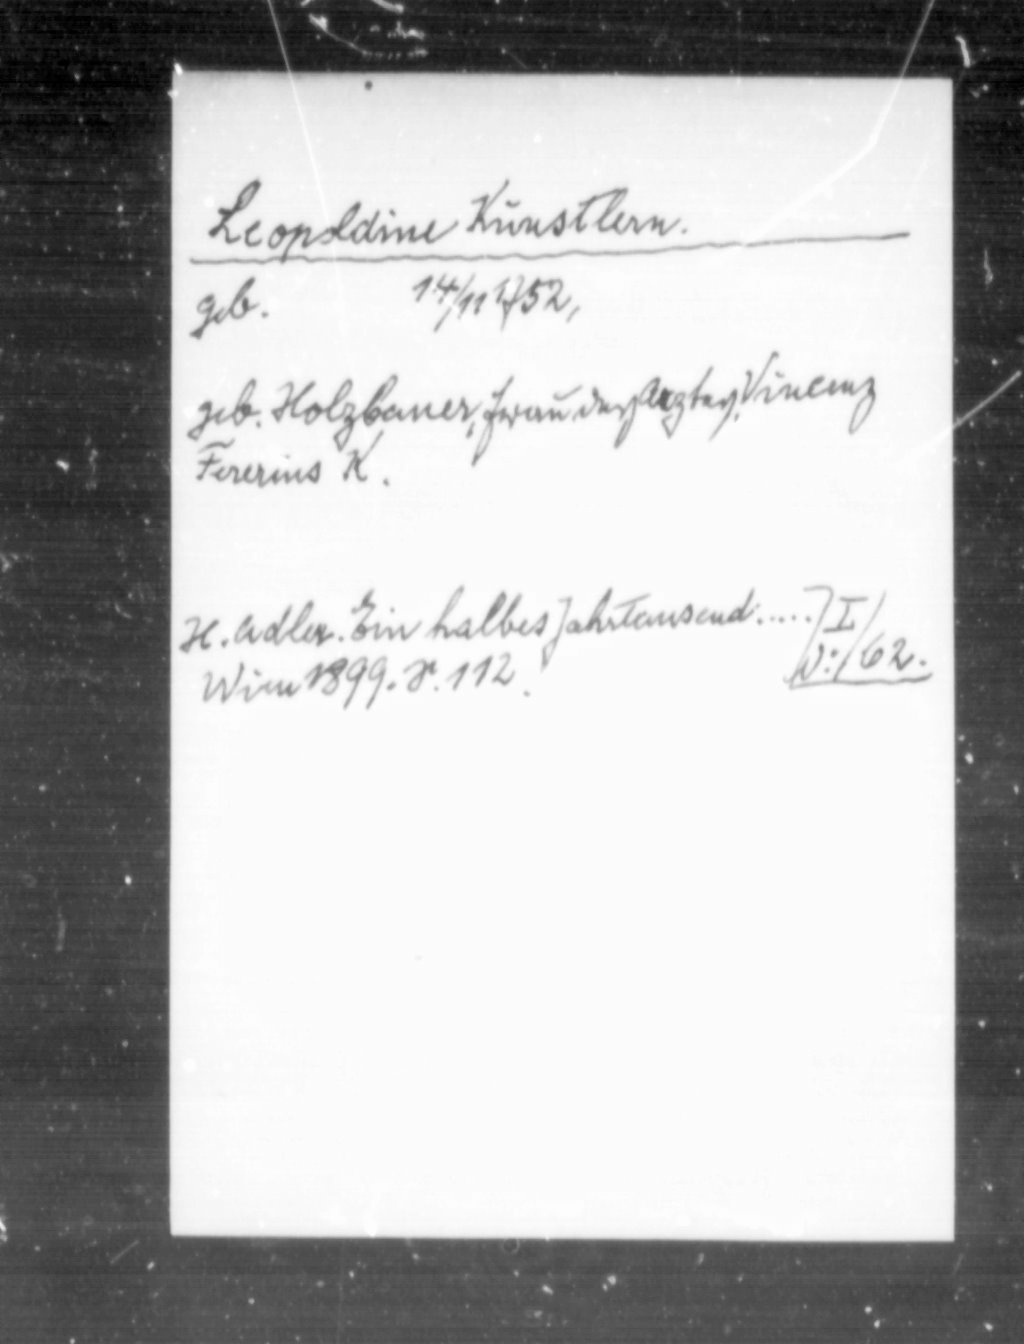 Leopoldine Künstlern.
geb. 14/11 1752,
geb. Holzbauer, Frau des Arztes Vincenz
Fererius K.
H. Adler. Ein halbes Jahrtausend.....
Wien 1899. S. 112.
I/62.